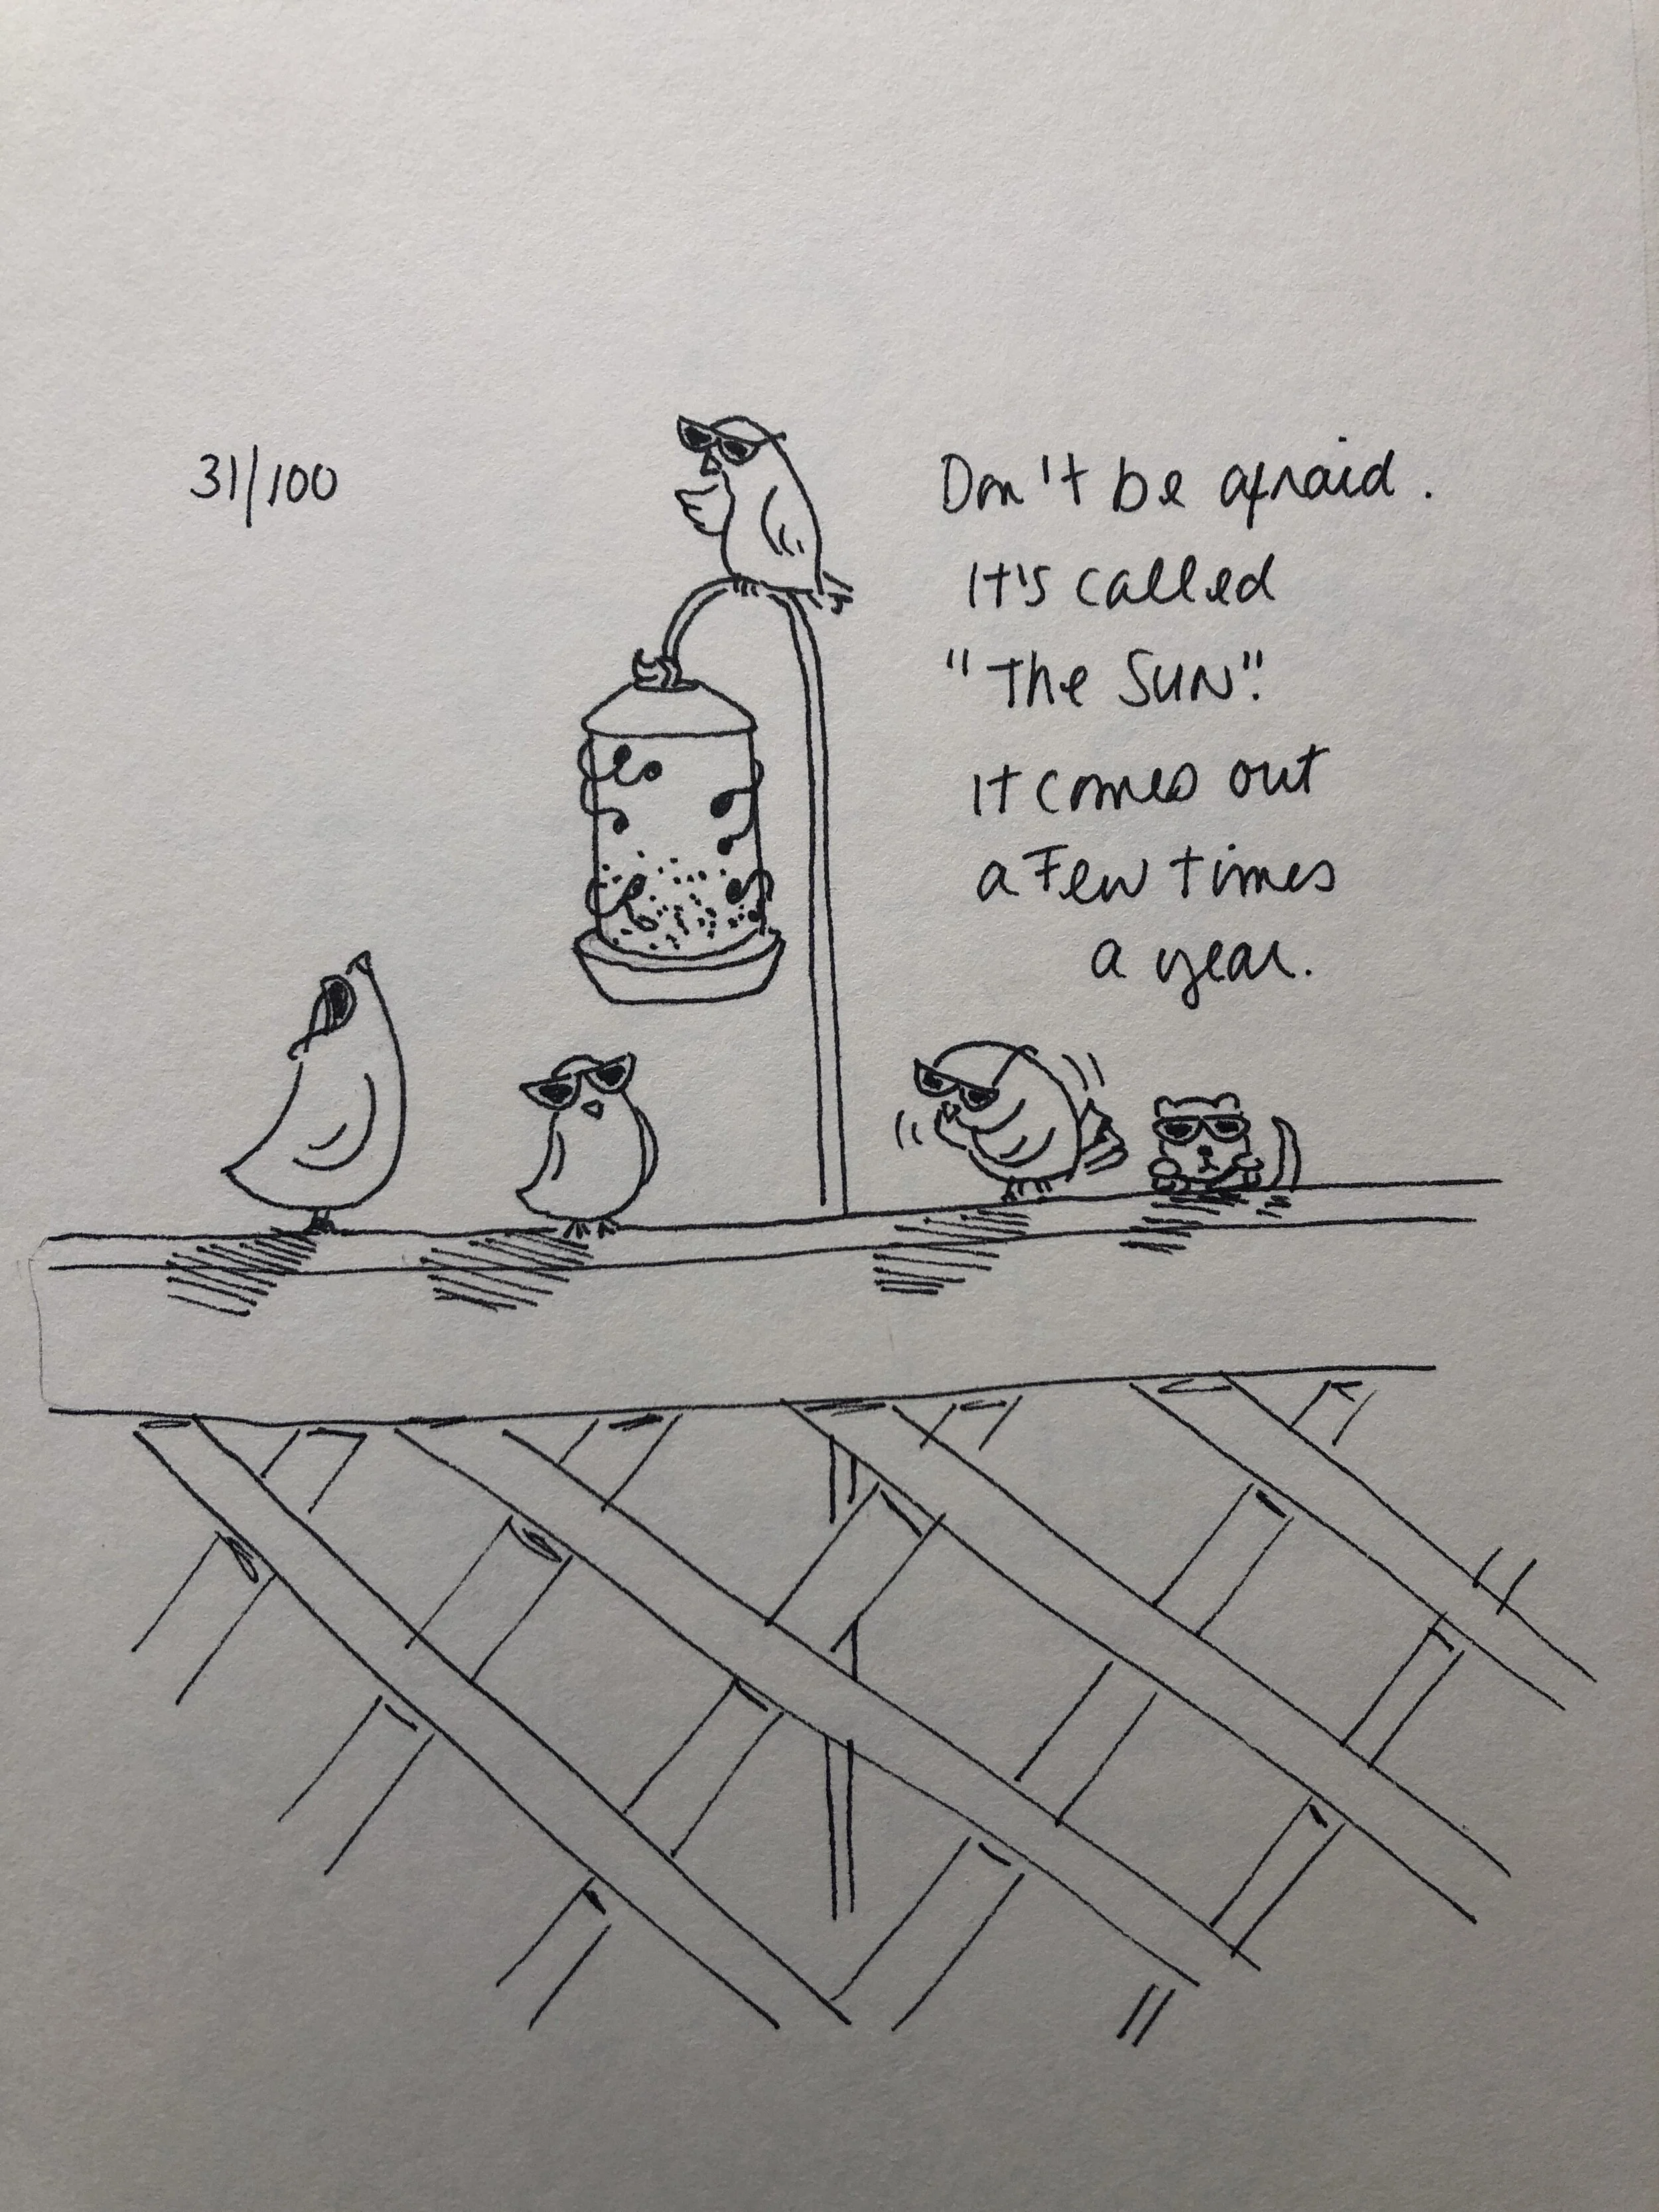 31/100
Don't be afraid.
It's called
"The SUN".
It comes out
a Few times
a year.